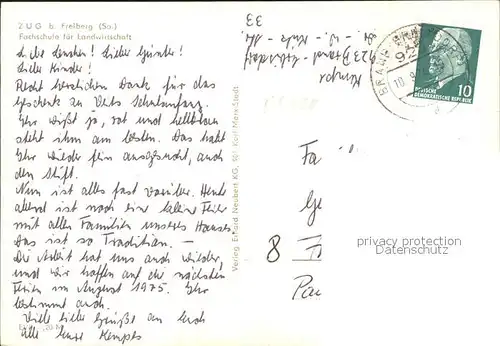 ZUG b. Freiberg (Sa.)
Fachschule für Landwirtschaft
Lieber Günter!
Liebe Kinder!
Recht herzlichen Dank für das
Geschenk zu Schulanfang.
Ihr wißt ja, rot und hellblau
steht ihm am besten. Das habt
Ihr wieder fein ausgesucht, auch
den Stift.
Nun ist alles fast vorüber. Heute
abend ist noch eine kleine Feier
mit allen Familien unseres Hauses.
Das ist so Tradition. —
Die Arbeit hat uns auch wieder,
und wir hoffen auf die nächsten
Ferien im August 1975. Ihr
bestimmt auch.
Viele liebe Grüße an Euch
alle Eure Kempes
Verlag Erhard Neubert KG, 501 Karl-Marx-Stadt
33
Kempe
923 Brand-Erbisdorf
BRAND-ERBISDORF
923
10
DEUTSCHE
DEMOKRATISCHE REPUBLIK
Fa
Ge
8
Pau
privacy protection
Datenschutz